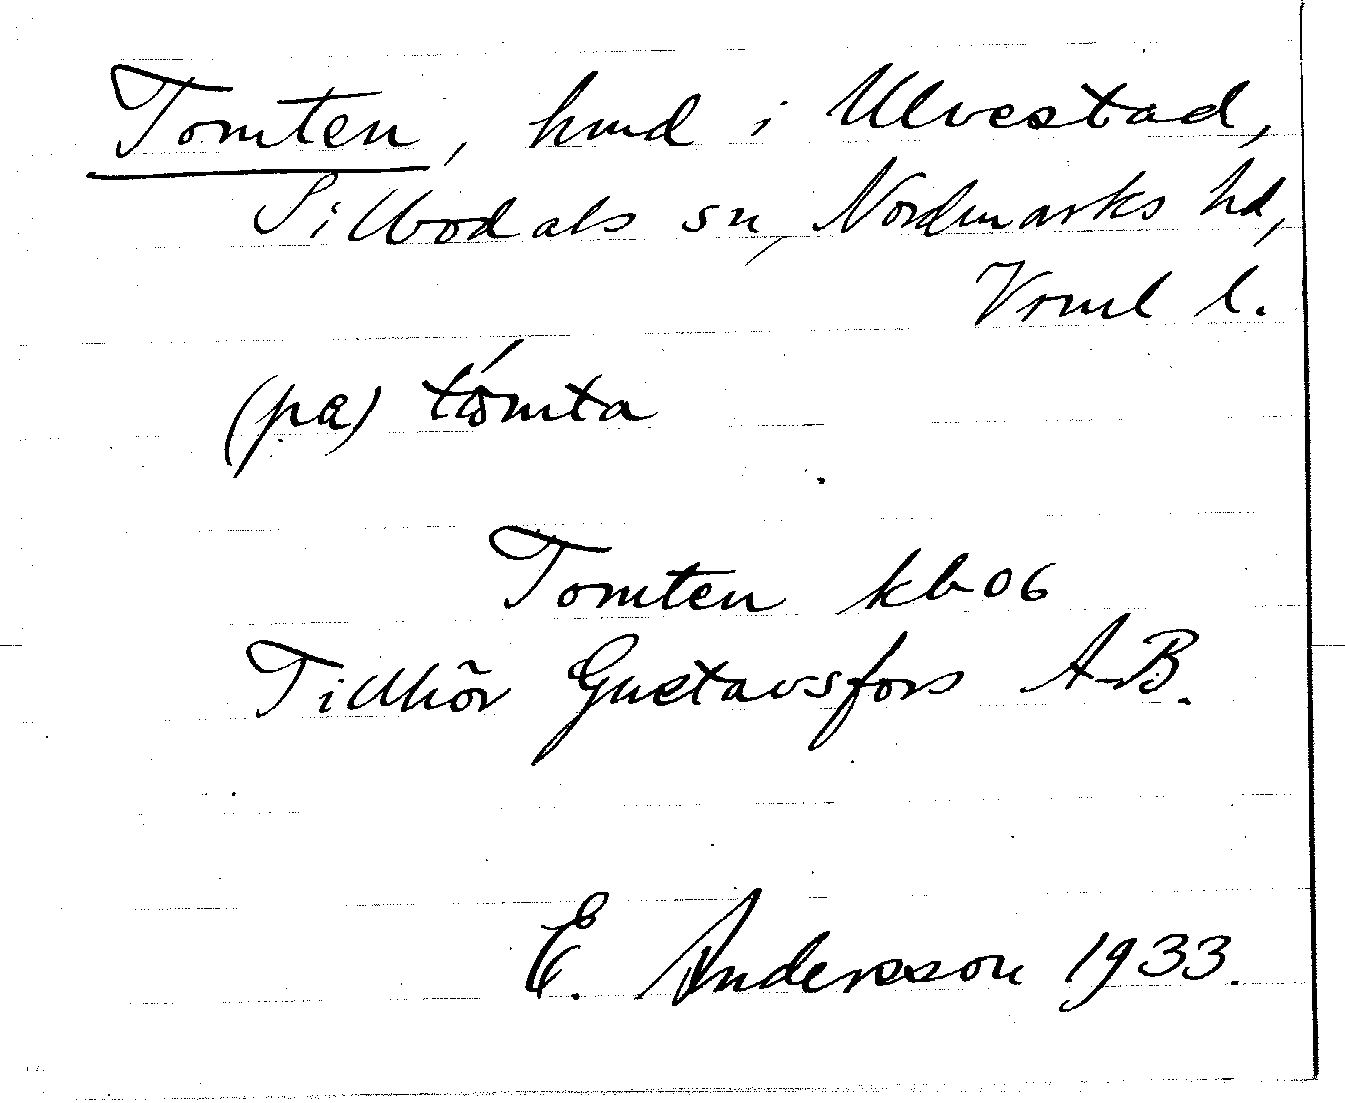 Tomten, hmd i Ulvestad,
Sillbodals sn, Nordmarks hd,
Vrml l.
(pa) tómta
Tomten kb 06
Tillhör Gustavsfors AB.
E. Andersson 1933.